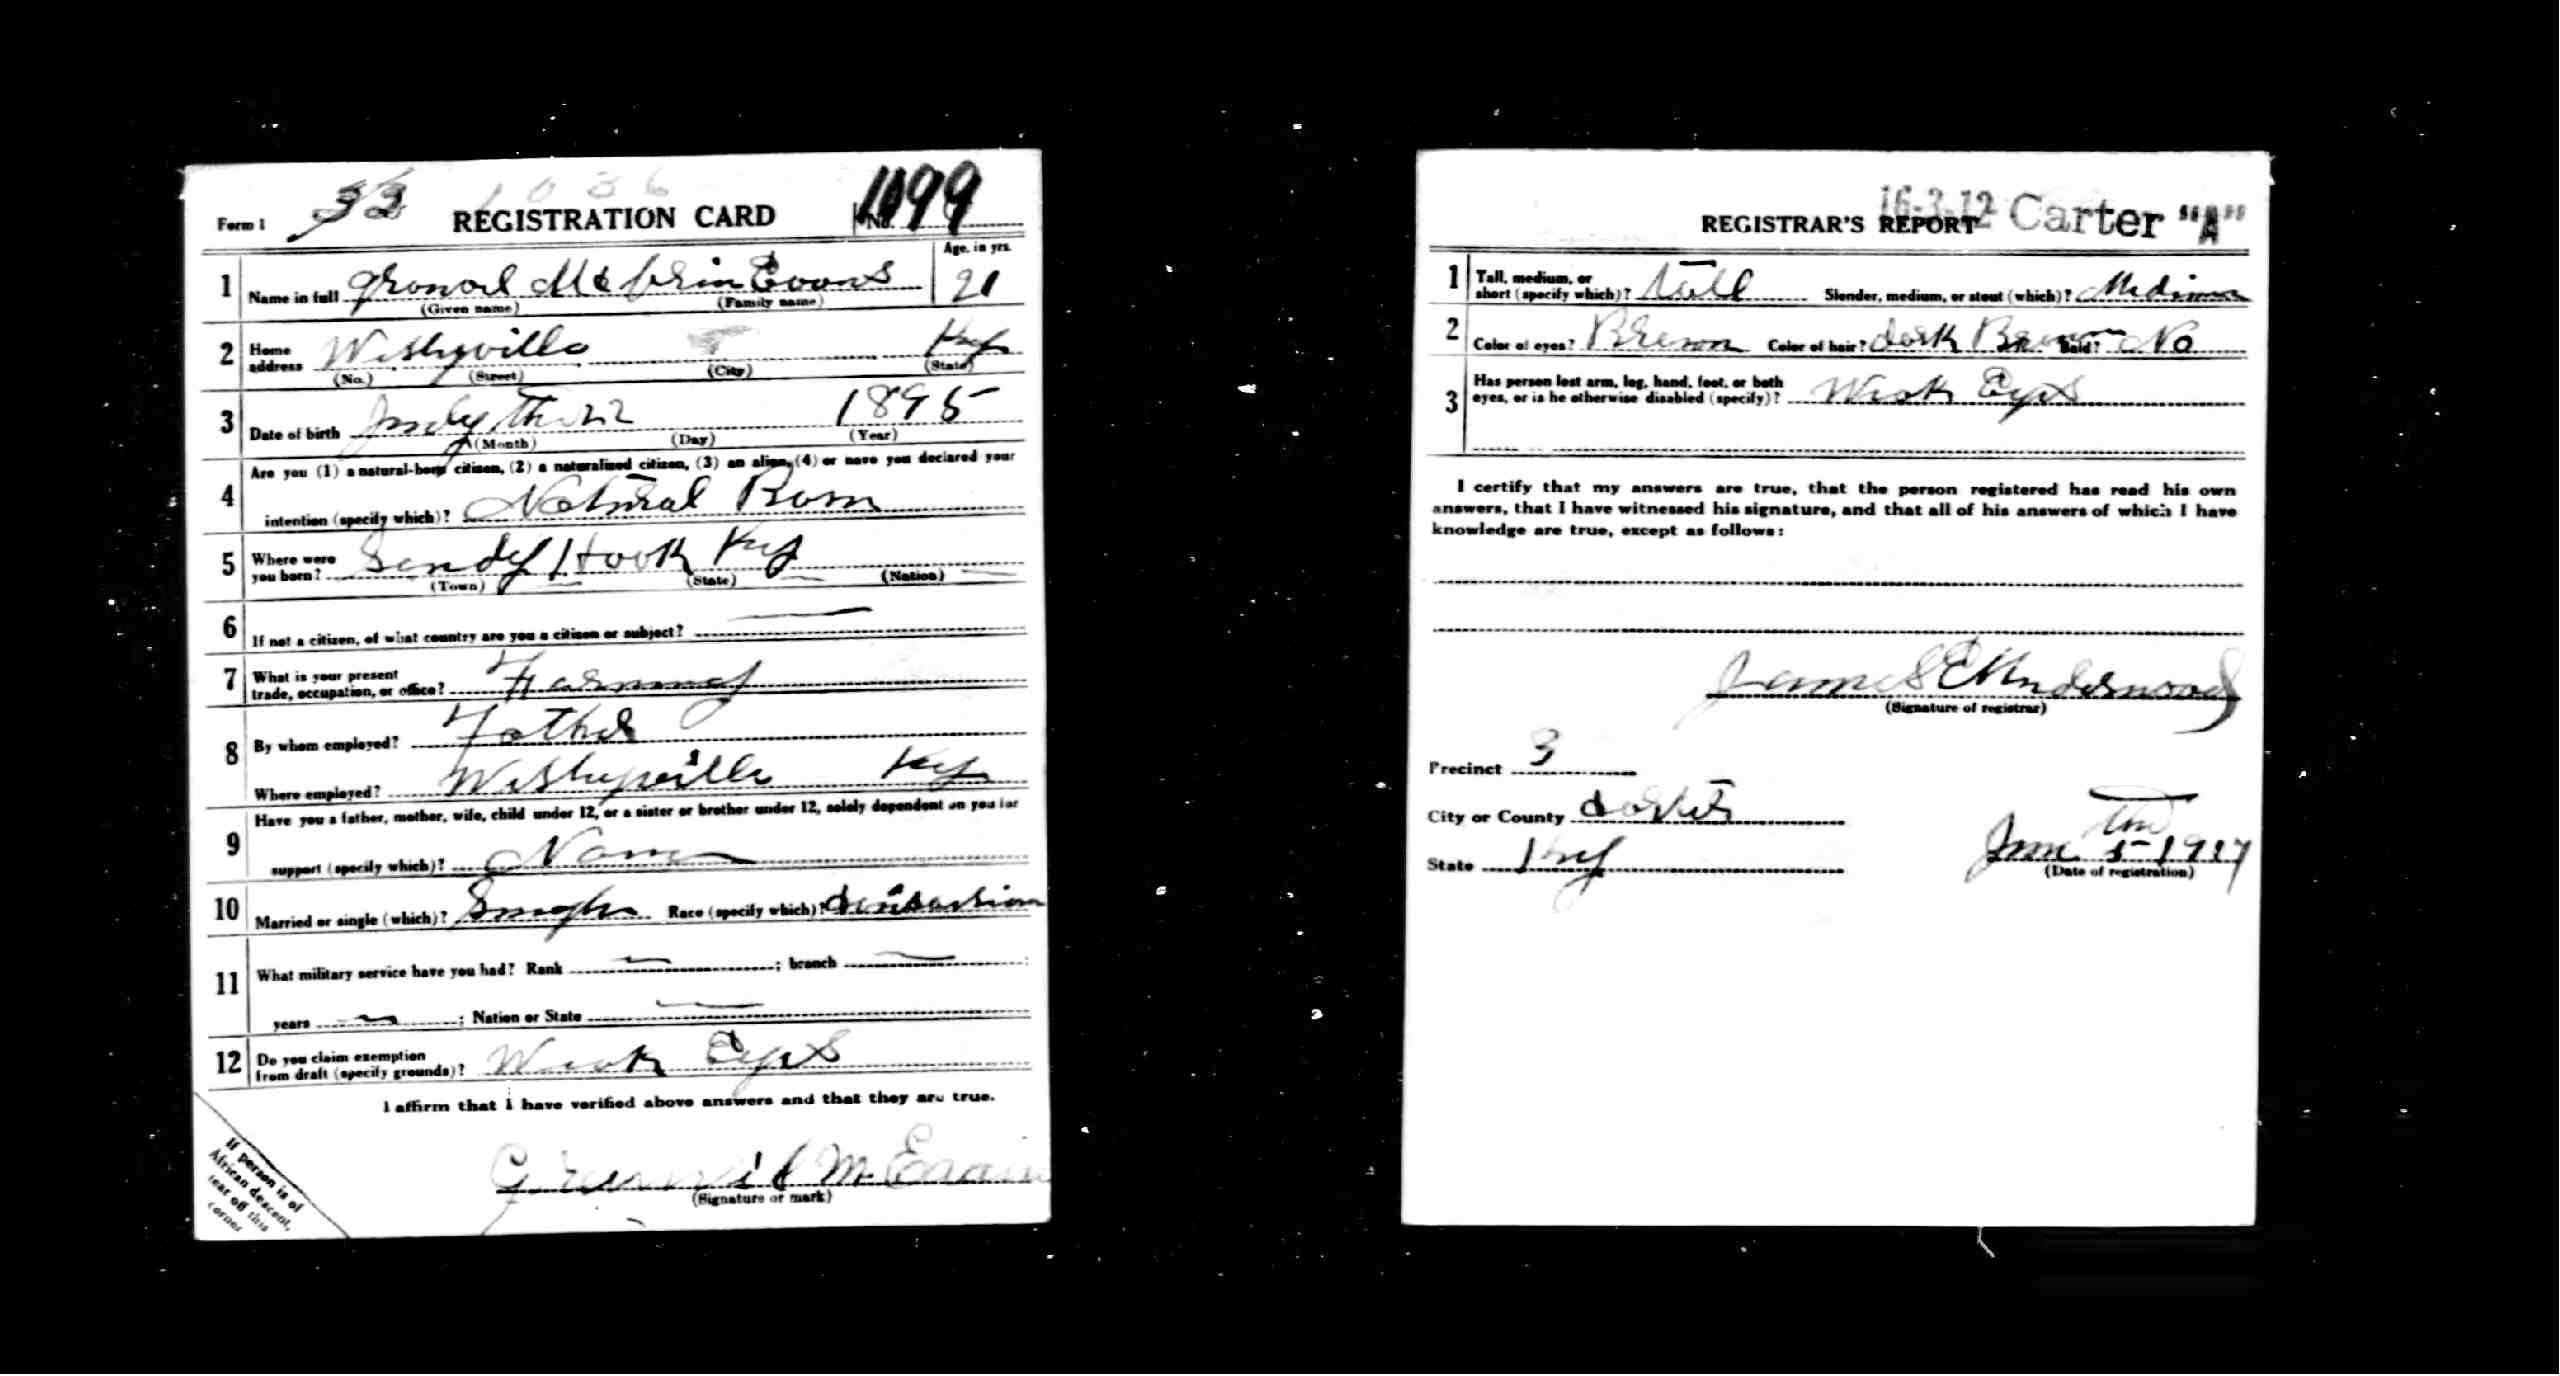 Form 1 33 1036 REGISTRATION CARD No. 1099
1 Name in full Evans Age, in yrs. 21
(Given name) (Family name)
2 Home address Ky
(No.) (Street) (City) (State)
3 Date of birth 22 1895
(Month) (Day) (Year)
4 Are you (1) a natural-born citizen, (2) a naturalized citizen, (3) an alien, (4) or have you declared your
intention (specify which)? Natural Born
5 Where were you born? Sandy Hook Ky
(Town) (State) (Nation)
6 If not a citizen, of what country are you a citizen or subject?
7 What is your present
trade, occupation, or office? Farming
8 By whom employed? Father
Where employed? Ky
9 Have you a father, mother, wife, child under 12, or a sister or brother under 12, solely dependent on you for
support (specify which)? None
10 Married or single (which)? Single Race (specify which)?
11 What military service have you had? Rank ; branch ;
years ; Nation or State
12 Do you claim exemption
from draft (specify grounds)? Weak Eyes
I affirm that I have verified above answers and that they are true.
M. Evans
(Signature or mark)
If person is of
African descent,
tear off this
corner
16-3-12 Carter "A"
REGISTRAR'S REPORT
1 Tall, medium, or
short (specify which)? tall Slender, medium, or stout (which)? Medium
2 Color of eyes? Brown Color of hair? dark Brown Bald? No
3 Has person lost arm, leg, hand, foot, or both
eyes, or is he otherwise disabled (specify)? Weak Eyes
I certify that my answers are true, that the person registered has read his own
answers, that I have witnessed his signature, and that all of his answers of which I have
knowledge are true, except as follows:
James E Underwood
(Signature of registrar)
Precinct 3
City or County Carter
State Ky June 5 1917
(Date of registration)